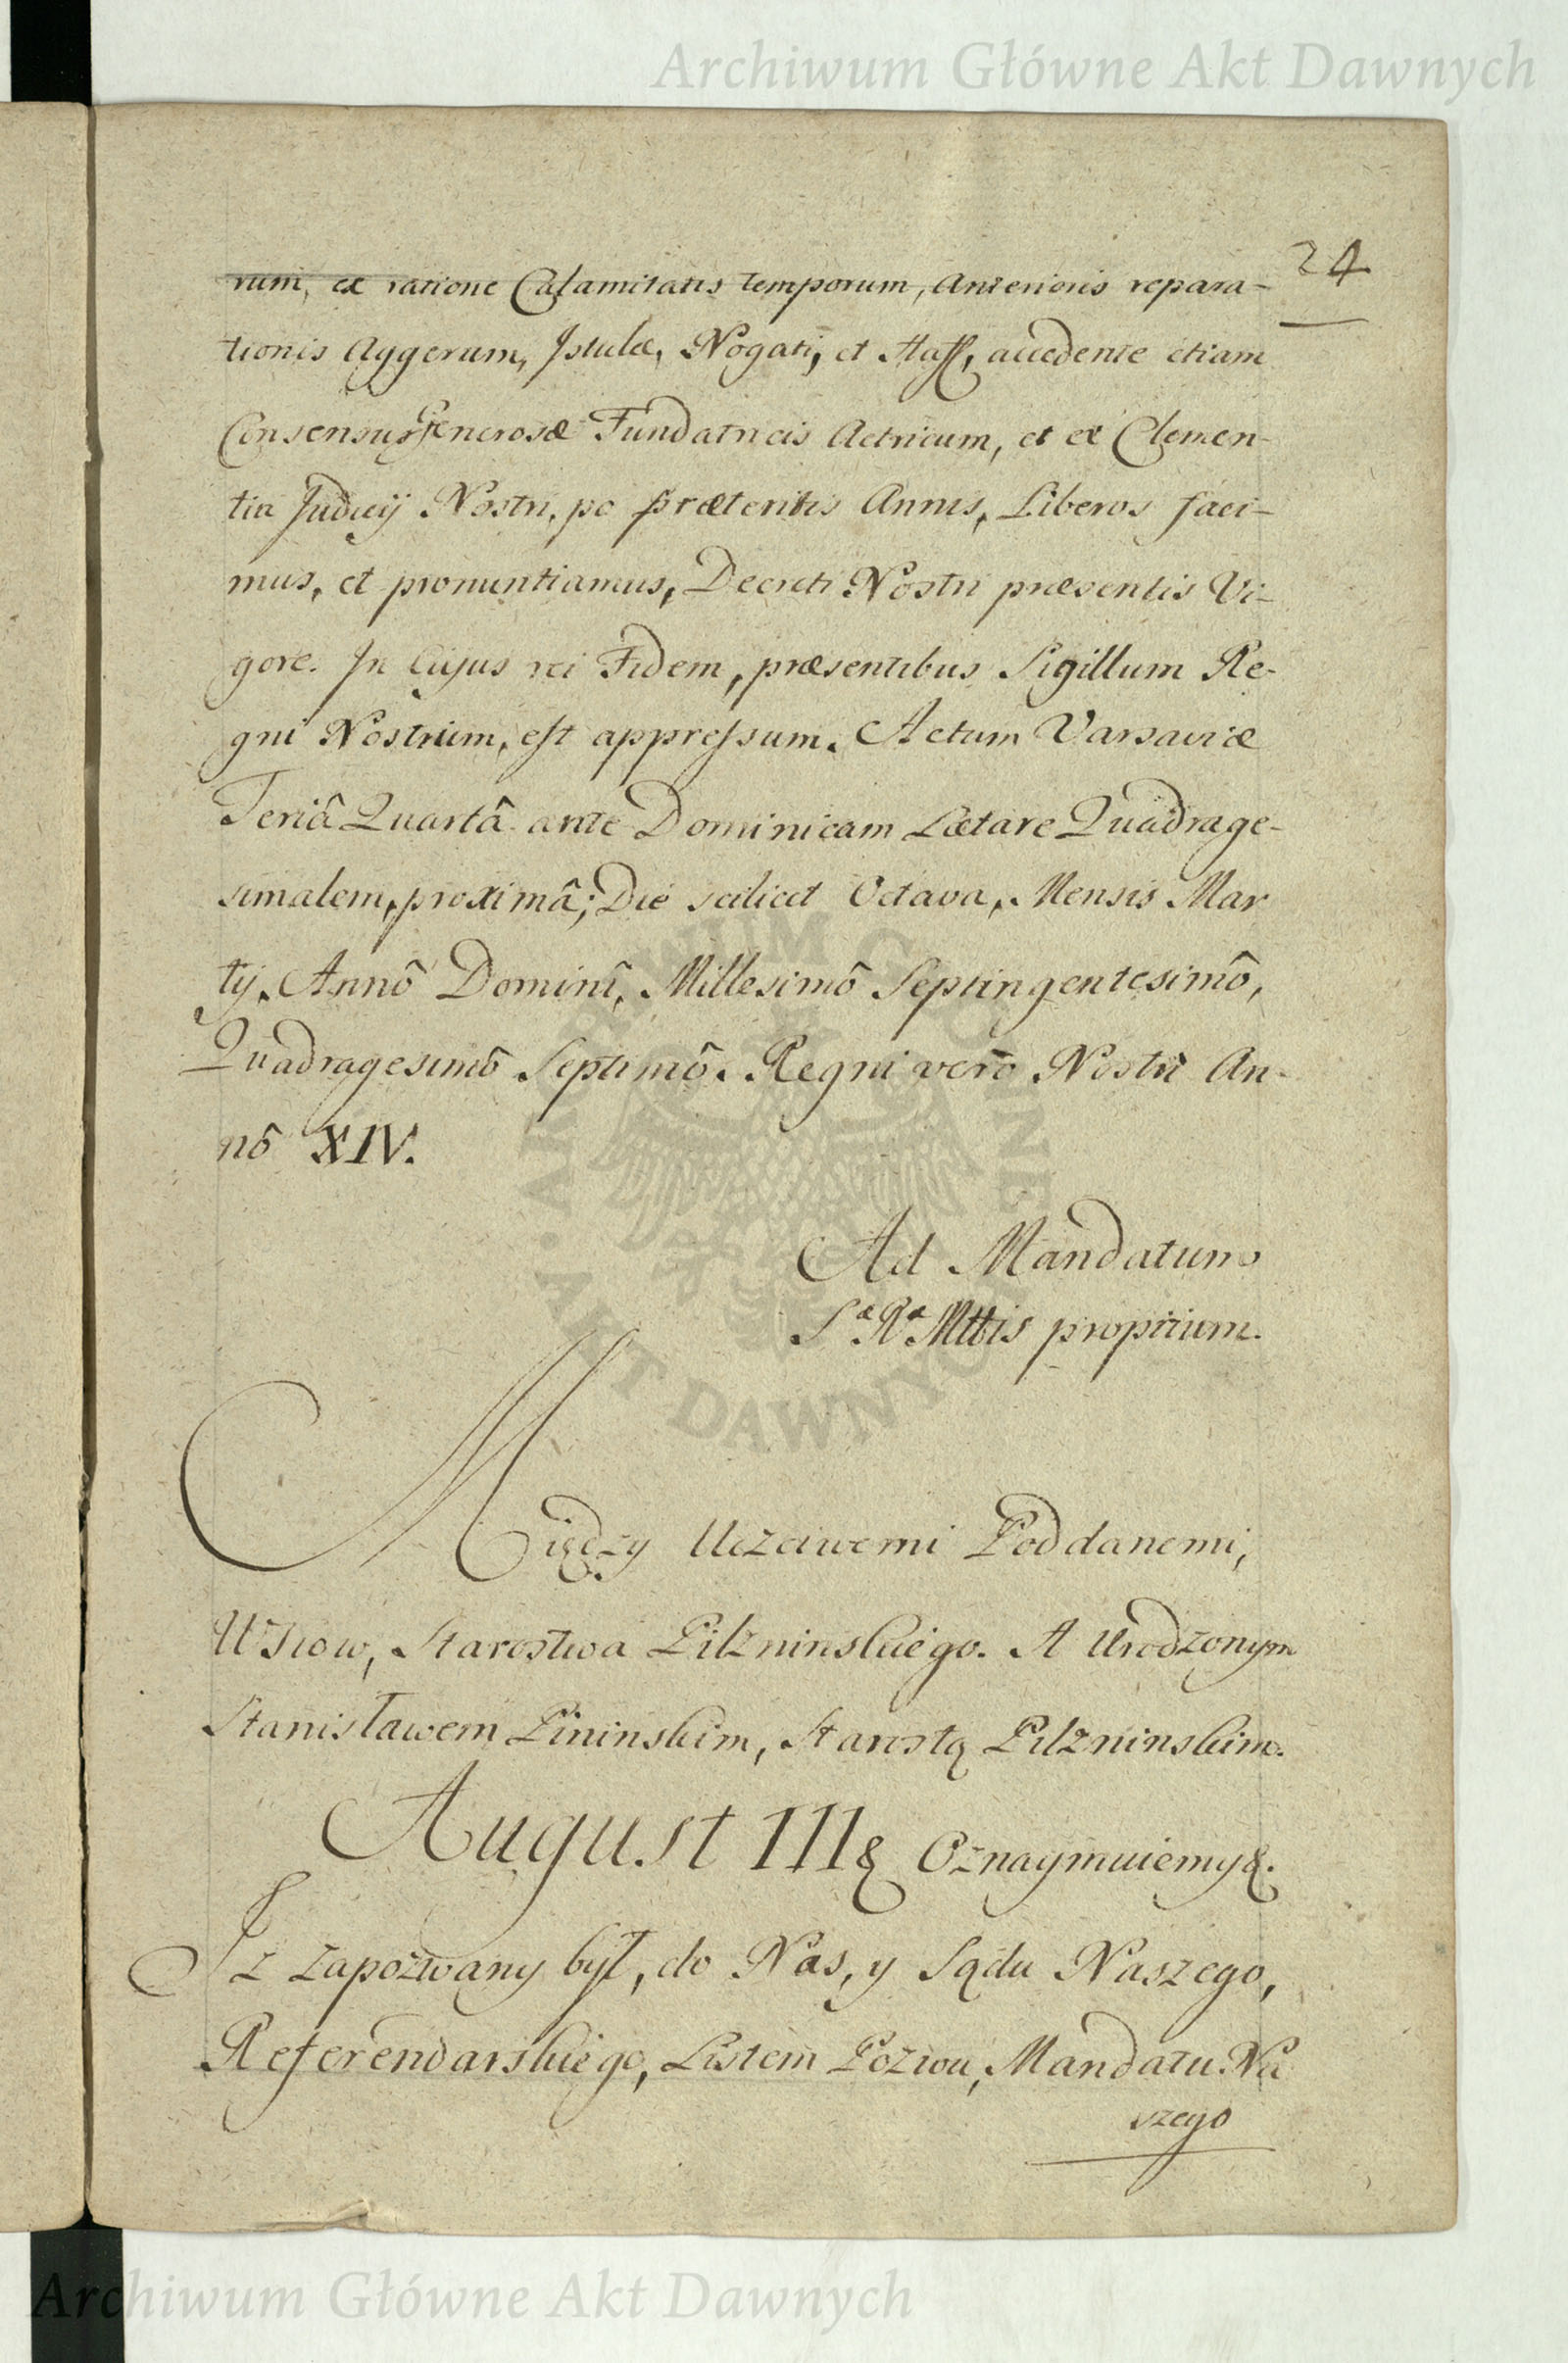 Archiwum Główne Akt Dawnych
24
rum, ex ratione Calamitatis temporum, Anterioris repara-
tionis Aggerum, Istulæ, Nogati, et Haff, accedente etiam
Consensu Generosæ Fundatricis Actricum, et ex Clemen-
tia Judicij Nostri, po præteritis Annis, Liberos faci-
mus, et pronuntiamus, Decreti Nostri præsentis Vi-
gore. In Cujus rei Fidem, præsentibus Sigillum Re-
gni Nostrum, est appressum. Actum Varsaviæ
Feriâ Quartâ ante Dominicam Lætare Quadrage-
simalem, proximâ; Die scilicet Octava, Mensis Mar
tij. Annô Domini, Millesimô Septingentesimô,
Quadragesimô Septimô. Regni vero Nostri An-
nô XIV.
Ad Mandatum
Sæ Ræ Mttis proprium.
Między Uczciwemi Poddanemi,
Wsiow, Starostwa Pilzninskiego. A Urodzonym
Stanisławem Pininskim, Starostą Pilzninskim.
August III& Oznaymuiemy&.
Iz zapozwany był, do Nas, y Sądu Naszego,
Referendarskiego, Listem Pozwu, Mandatu Na
szego
ARCHIWUM GŁÓWNE · AKT DAWNYCH ·
Archiwum Główne Akt Dawnych